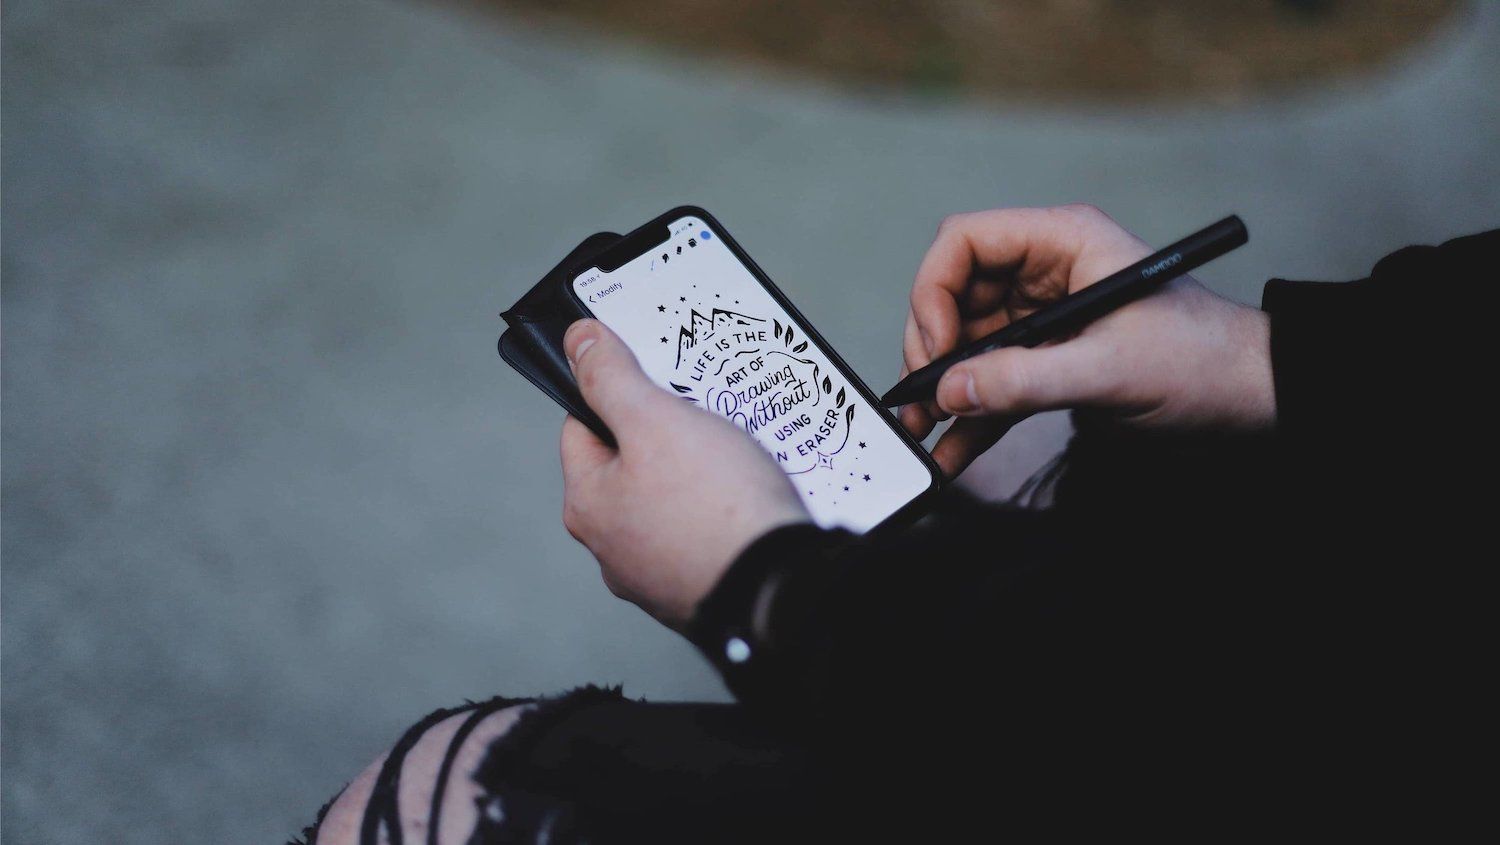 19:58
Modify
LIFE IS THE
ART OF
Drawing
Without
USING
N ERASER
BAMBOO